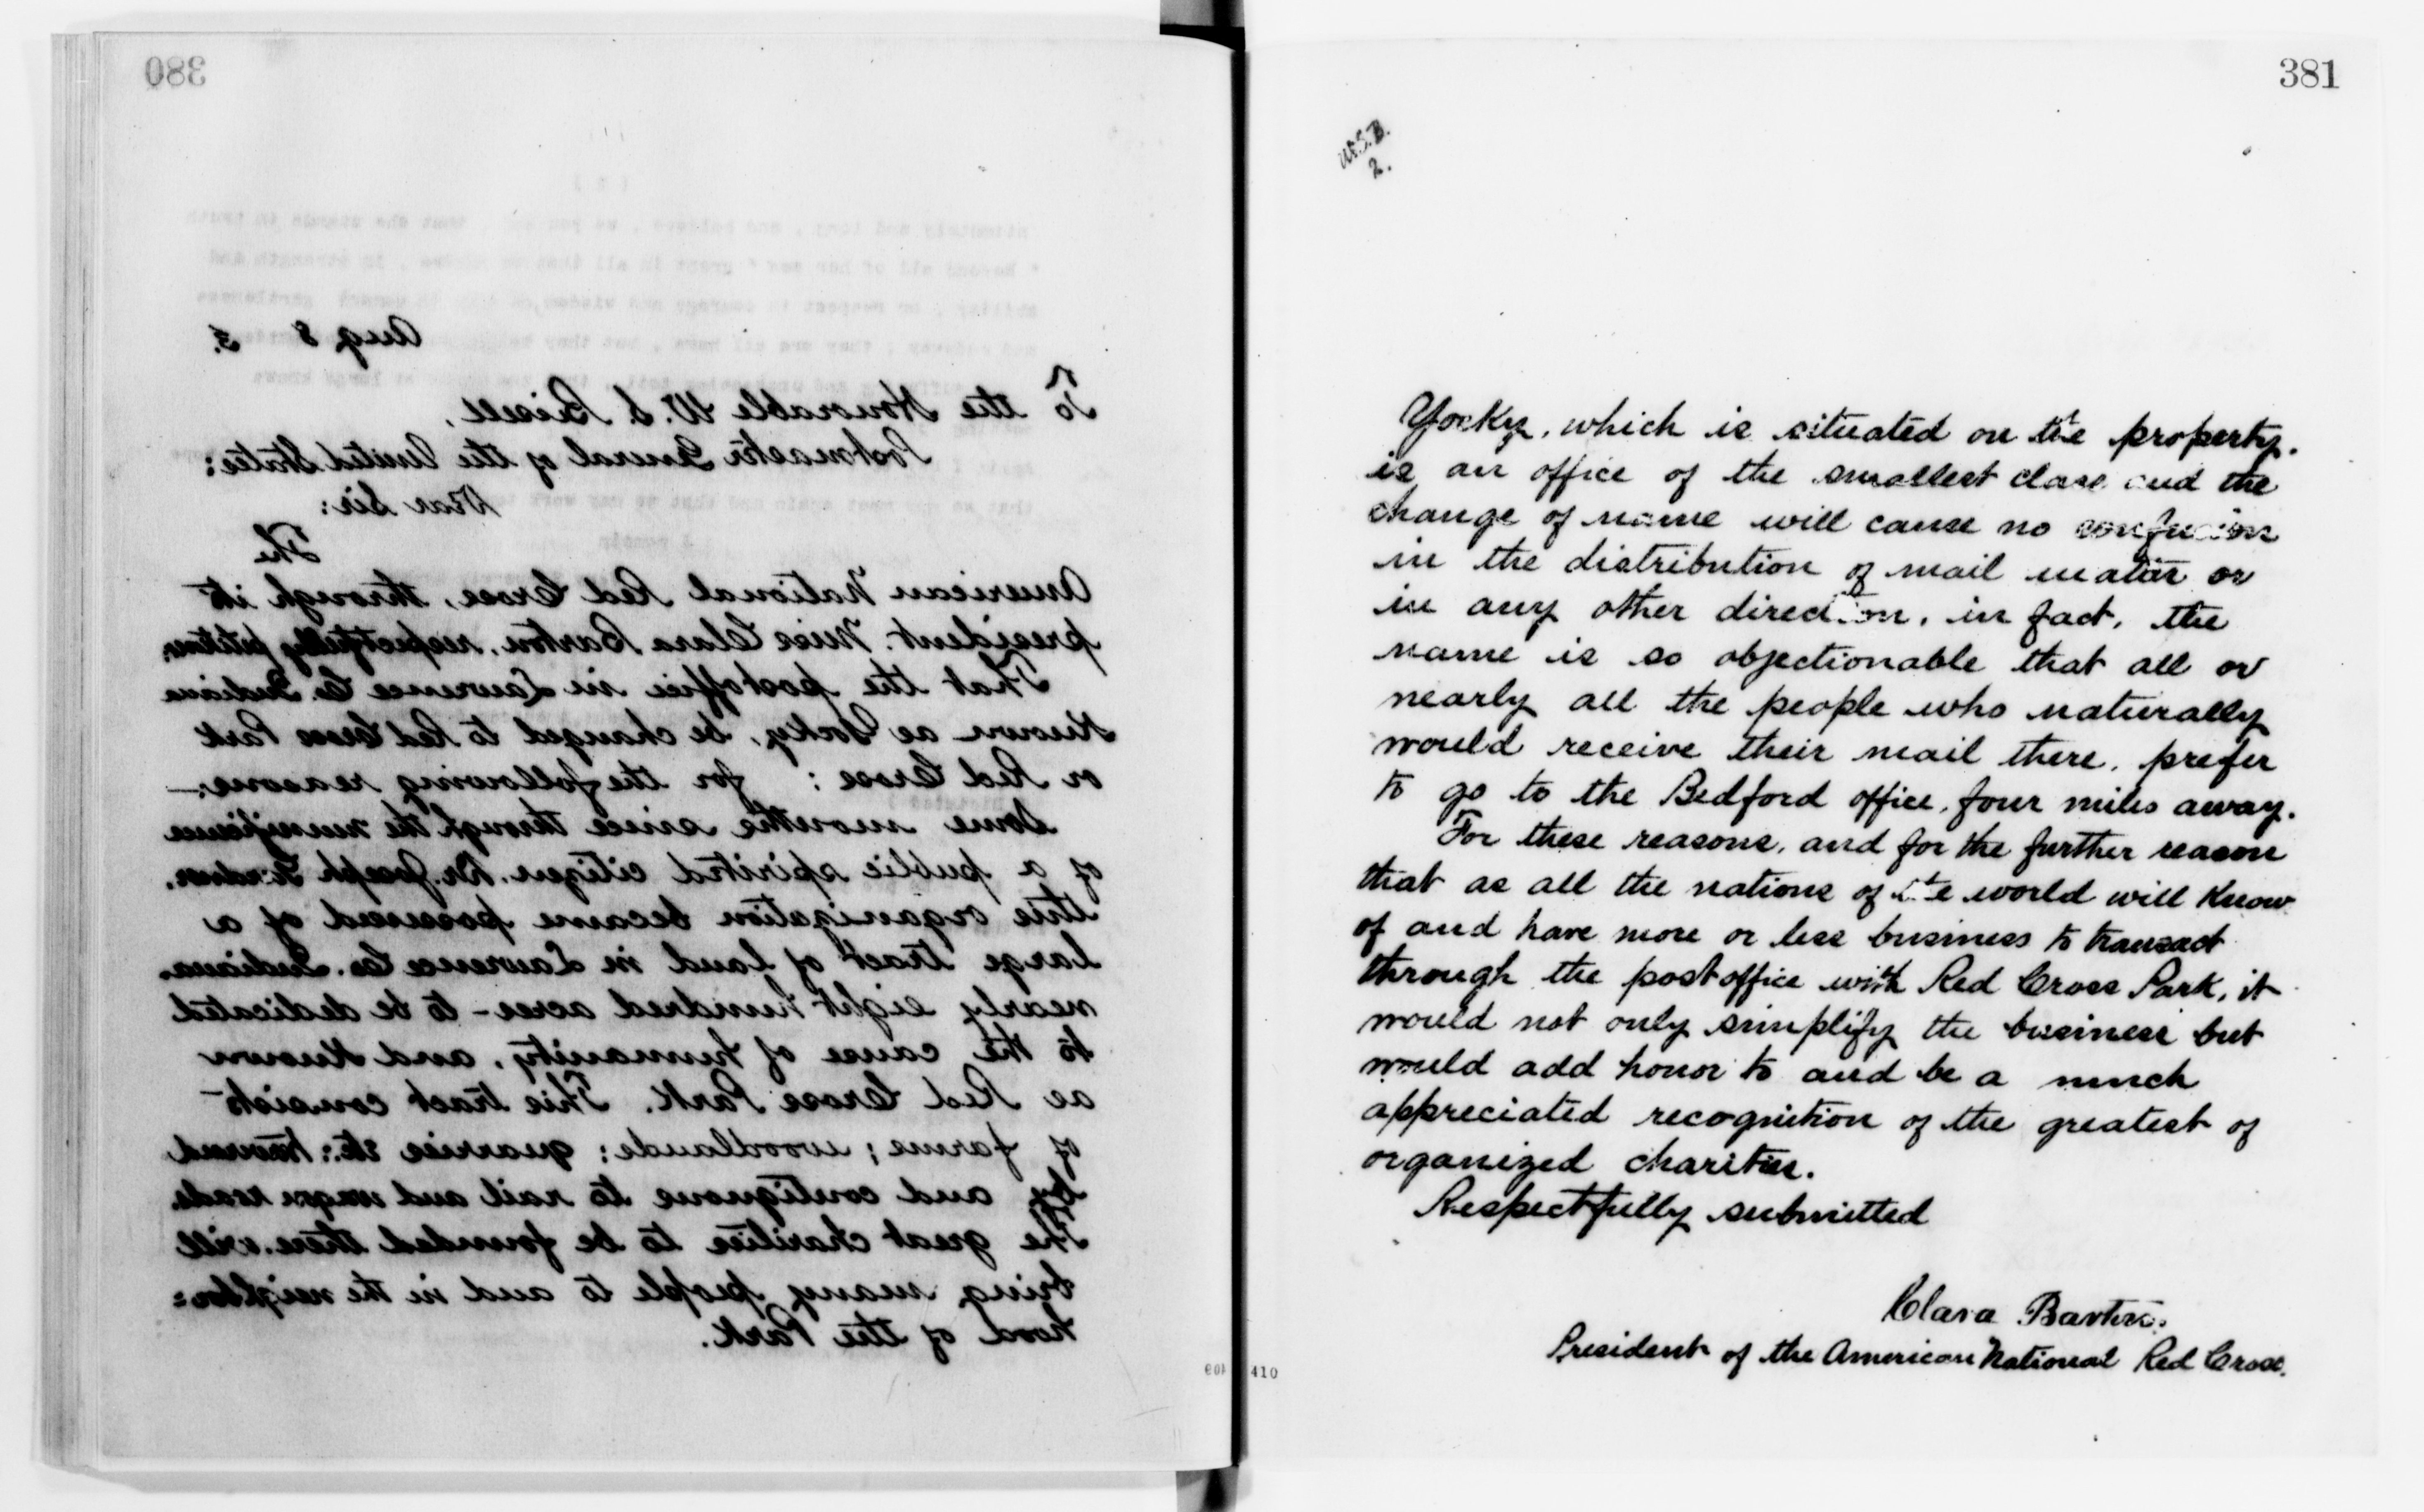 380
Aug 8 3.
To the Honorable W. S. Bissell,
Postmaster General of the United States:
Dear Sir:
The
American National Red Cross, through its
president. Miss Clara Barton, respectfully petitions.
That the postoffice in Lawrence Co. Indiana
Known as Yocky, be changed to Red Cross Park
or Red Cross : for the following reasons:—
Some months since through the munificence
of a public spirited citizen. Dr. Joseph Gardner.
this organization became possessed of a
large tract of land in Lawrence Co. Indiana.
nearly eight hundred acres - to be dedicated
to the cause of humanity, and known
as Red Cross Park. This tract consists
of farms; woodlands; quarries etc.:
by and contiguous to rail and wagon roads.
The great charities to be founded there. will
bring many people to and in the neighbor=
hood of the Park.
409
381
W.S.B.
2.
Yocky, which is situated on the property.
is an office of the smallest class and the
change of name will cause no confusion
in the distribution of mail matter or
in any other direction, in fact, the
name is so objectionable that all or
nearly all the people who naturally
would receive their mail there, prefer
to go to the Bedford office, four miles away.
For these reasons, and for the further reason
that as all the nations of the world will know
of and have more or less business to transact
through the postoffice with Red Cross Park, it
would not only simplify the business but
would add honor to and be a much
appreciated recognition of the greatest of
organized charities.
Respectfully submitted
Clara Barton.
President of the American National Red Cross.
410